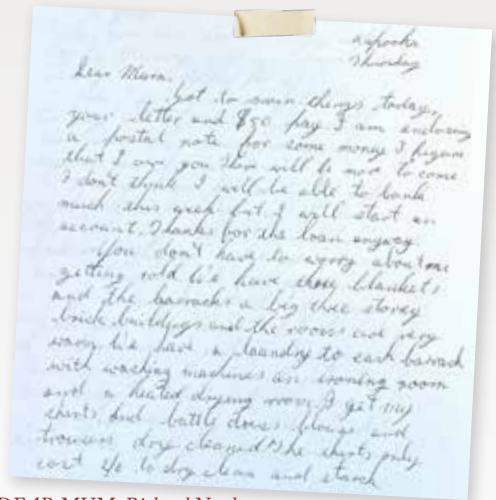 Kapooka
Thursday
Dear Mum,
Got two things today,
your letter and $50 pay I am enclosing
a postal note for some money I figure
that I owe you there will be more to come
I don't think I will be able to bank
much this week but I will start an
account. Thanks for the loan anyway.
You don't have to worry about me
getting cold we have three blankets
and the barracks a big three storey
brick buildings and the rooms are very
warm. We have a laundry to each barrack
with washing machines an ironing room
and a heated drying room. I get my
shirts, and battle dress blouse and
trousers dry cleaned. The shirts only
cost to dry clean and starch
DEAR MUM: